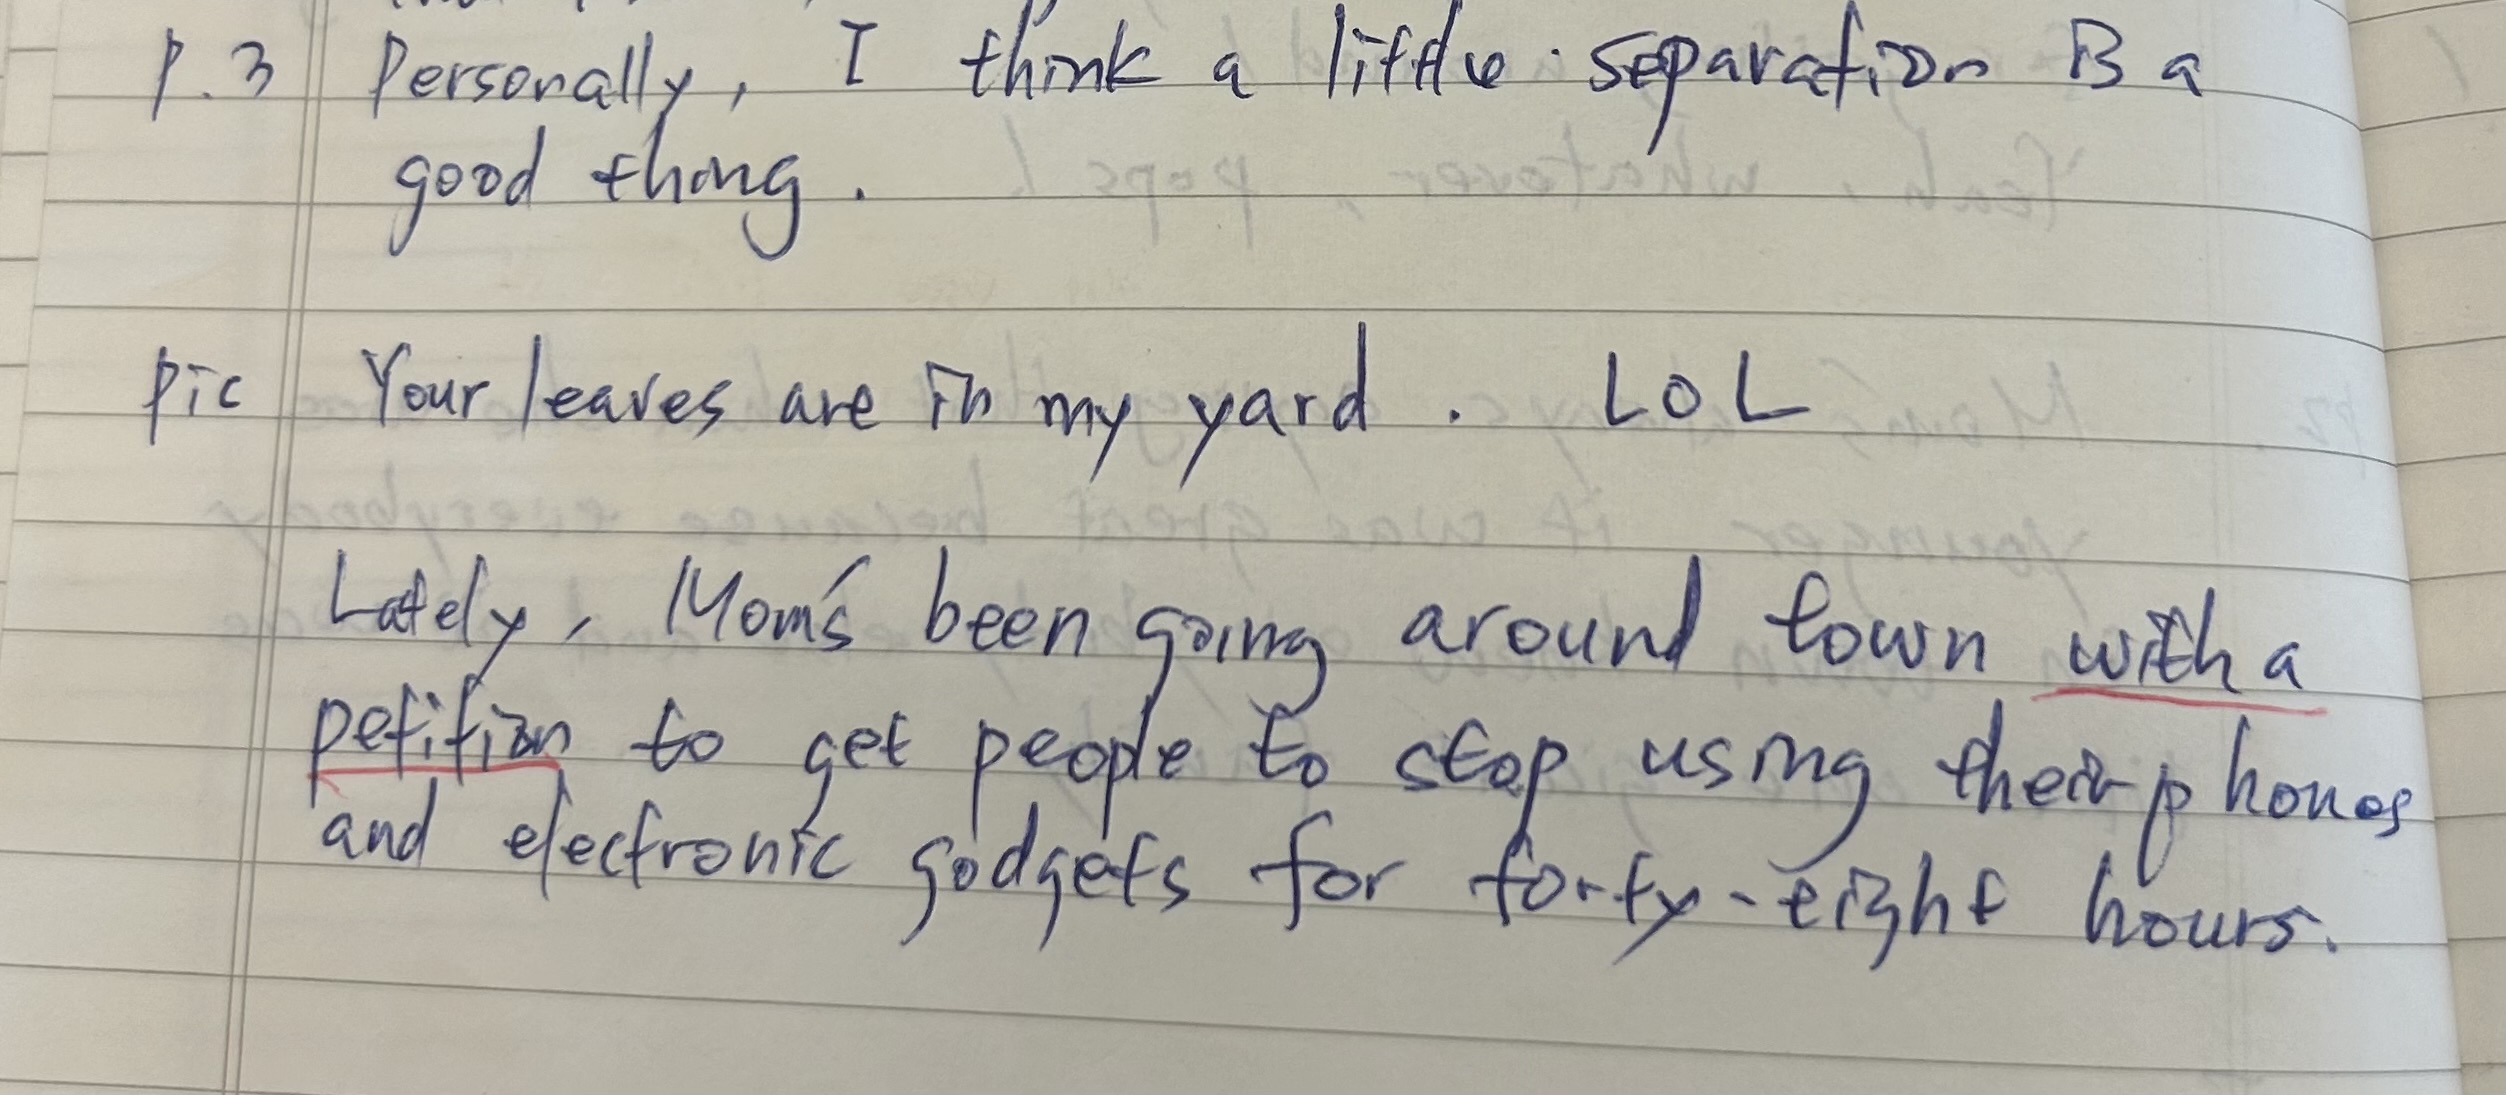 p.3 Personally, I think a little separation is a
good thing.
pic Your leaves are in my yard. LOL
Lately, Mom's been going around town with a
petition to get people to stop using their phones
and electronic gadgets for forty-eight hours.